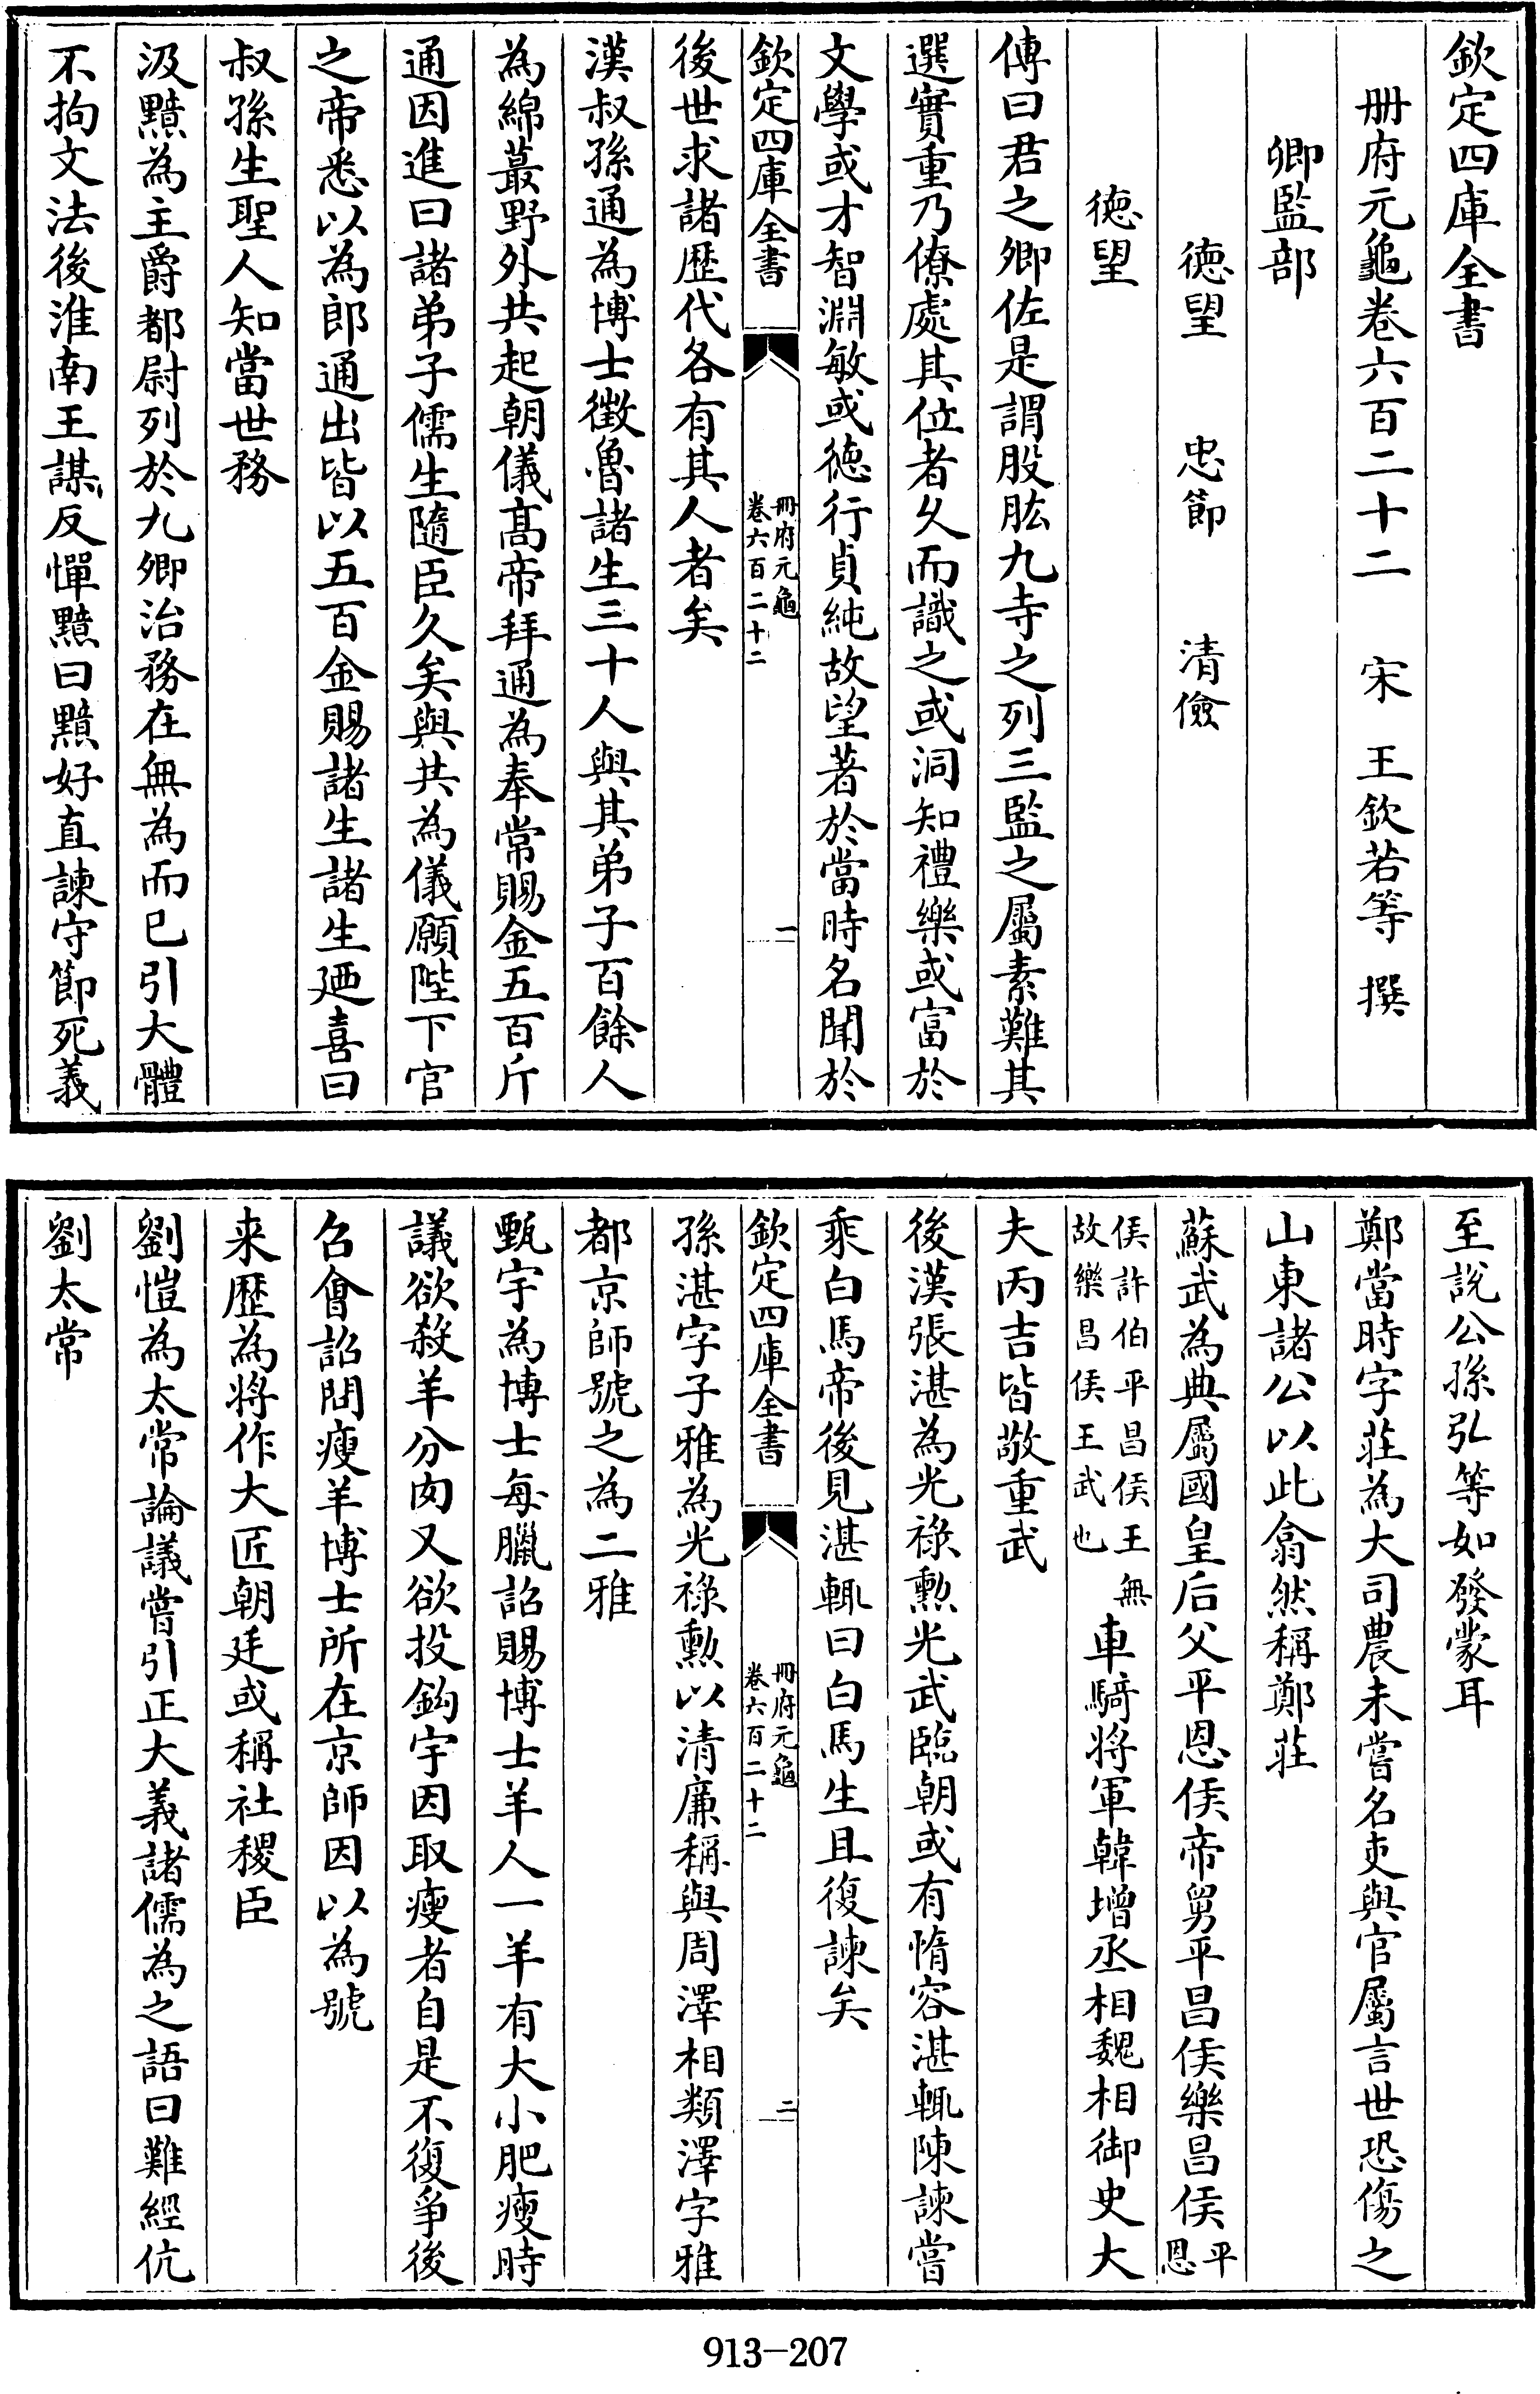 欽定四庫全書
册府元龜卷六百二十二　宋　王欽若等　撰
卿監部
德望　忠節　清儉
德望
傳曰君之卿佐是謂股肱九寺之列三監之屬素難其
選實重乃僚處其位者乆而識之或洞知禮樂或富於
文學或才智淵敏或德行貞純故望著於當時名聞於
欽定四庫全書
冊府元龜
卷六百二十二
一
後世求諸歴代各有其人者矣
漢叔孫通為博士徴魯諸生三十人與其弟子百餘人
為綿蕞野外共起朝儀髙帝拜通為奉常賜金五百斤
通因進曰諸弟子儒生隨臣久矣與共為儀願陛下官
之帝悉以為郎通出皆以五百金賜諸生諸生廼喜曰
叔孫生聖人知當世務
汲黯為主爵都尉列於九卿治務在無為而已引大體
不拘文法後淮南王謀反憚黯曰黯好直諫守節死義
至説公孫弘等如發蒙耳
鄭當時字莊為大司農未嘗名吏與官屬言世恐傷之
山東諸公以此翕然稱鄭莊
蘇武為典屬國皇后父平恩侯帝舅平昌侯樂昌侯平恩
侯許伯平昌侯王無
故樂昌侯王武也
車騎將軍韓增丞相魏相御史大
夫丙吉皆敬重武
後漢張湛為光祿勲光武臨朝或有惰容湛輒陳諫嘗
乘白馬帝後見湛輒曰白馬生且復諫矣
欽定四庫全書
冊府元龜
卷六百二十二
二
孫湛字子雅為光祿勲以清廉稱與周澤相類澤字雅
都京師號之為二雅
甄宇為博士每臘詔賜博士羊人一羊有大小肥瘦時
議欲殺羊分肉又欲投鈎宇因取瘦者自是不復爭後
召會詔問瘦羊博士所在京師因以為號
来歴為將作大匠朝廷或稱社稷臣
劉愷為太常論議嘗引正大義諸儒為之語曰難經伉
劉太常
913-207